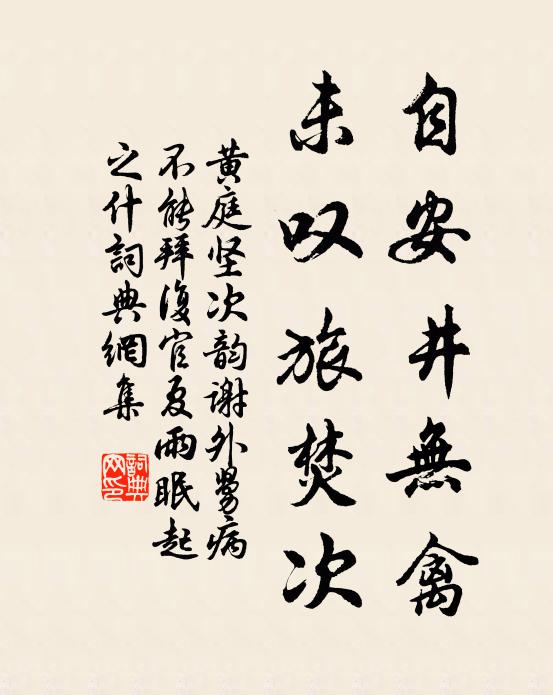 自安井無禽
未叹旅焚次
黄庭坚次韵謝外舅病
不能拜復官夏雨眠起
之什詞典網集
詞典
网印